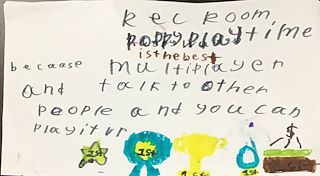 Rec Room,
poppyplaytime
isthebest
becaase multiplayer
and talk to other
people and you can
playitvr
1st 1st 1st